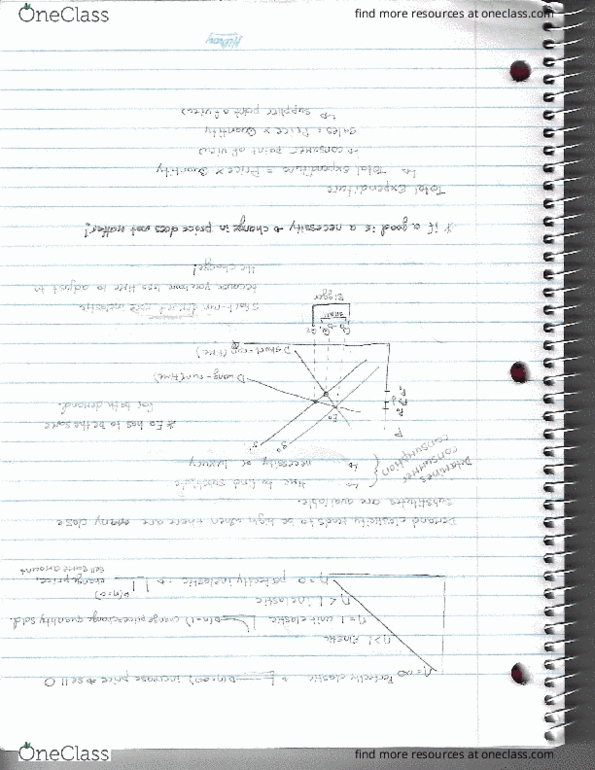 OneClass
find more resources at oneclass.com
η=∞
Perfectly elastic
D(η=∞) increase price → sell 0
η>1 Elastic
η=1 unit elastic
D(η=1) change price, change quantity sold.
η<1 inelastic
η=0 perfectly inelastic
D(η=0)
change price,
sell same amount
Demand elasticity tends to be high when there are many close
substitutes are available.
Determines
consumer
consumption
time to find substitute
necessity or luxury
P
S'
S°
E₀
* E₀ has to be the same
for both demand.
D long-run (time)
D short-run (time)
small
Bigger
Short-run
inelastic
because you have less time to adjust to
the change!
* if a good is a necessity → change in price does not matter!
Total Expenditure
↳ Total expenditure = Price × Quantity
→ consumer point of view
Sales = Price × Quantity
↳ supplier point of view
OneClass
find more resources at oneclass.com